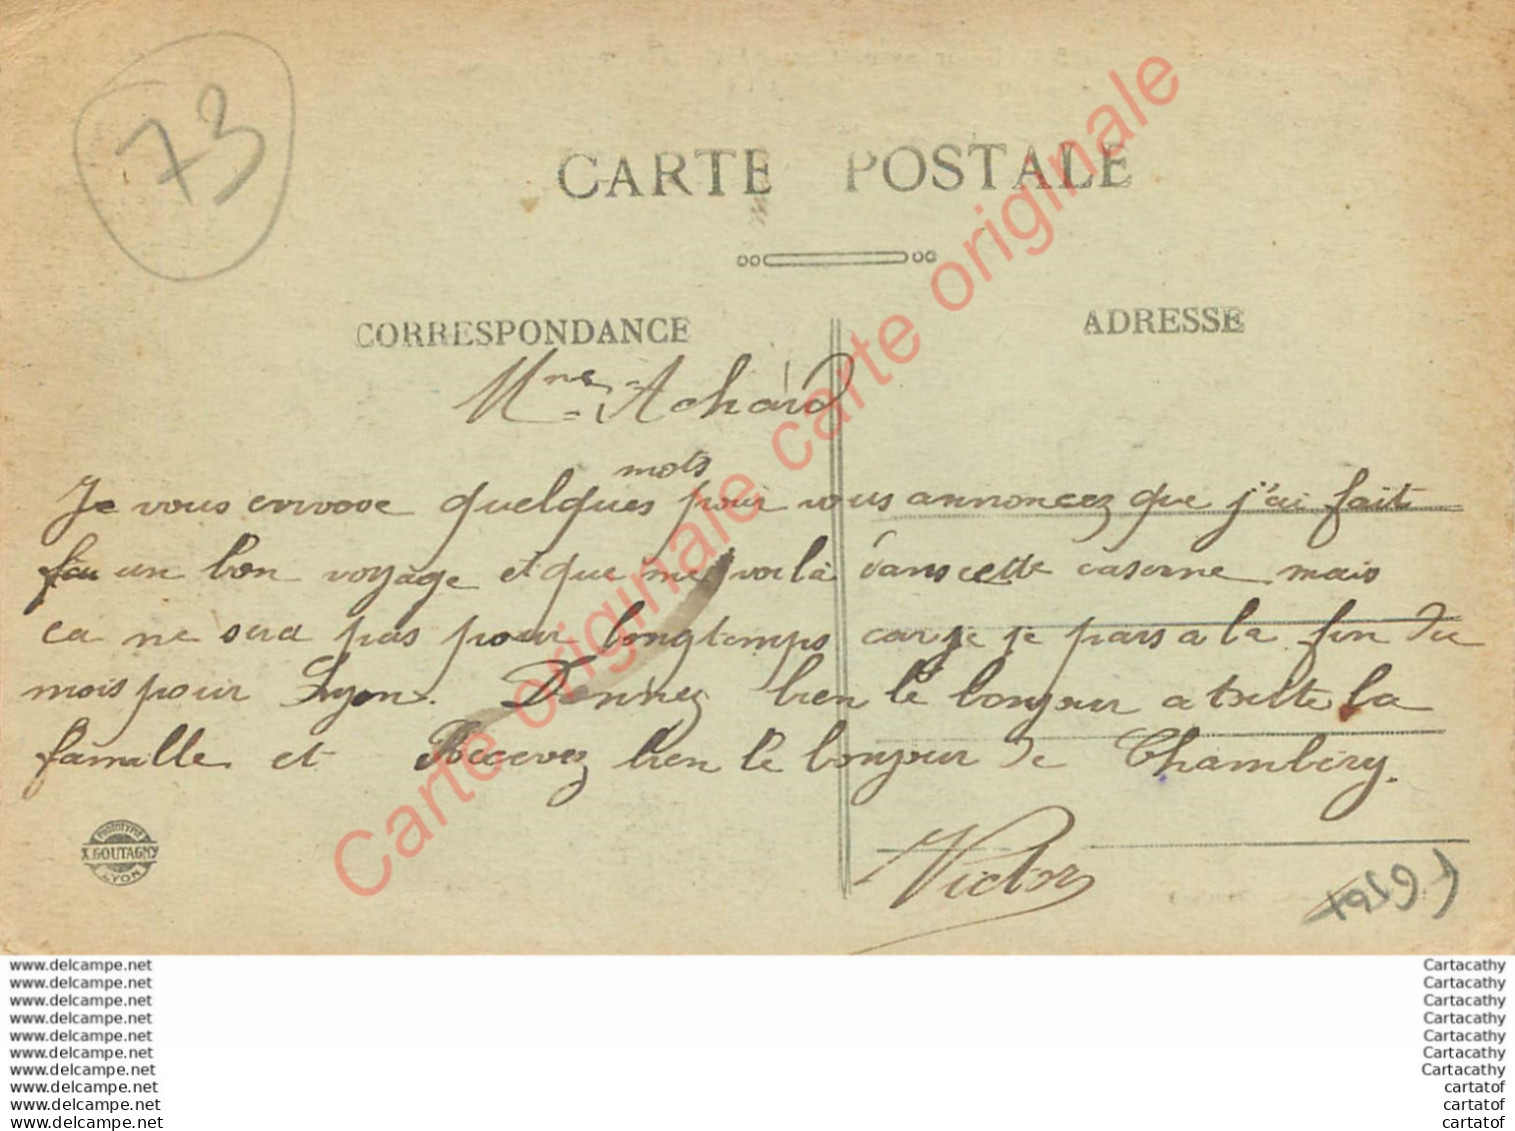 73
CARTE POSTALE
CORRESPONDANCE
ADRESSE
Mme Achard
mots
Je vous envoye quelques pour vous annoncez que j'ai fait
un bon voyage et que me voilà dans cette caserne mais
ca ne sera pas pour longtemps car je je pars a la fin du
mois pour Lyon. Donnez bien le bonjour a toutte la
famille et Recevez bien le bonjour de Chambéry.
Victor
PHOTOTYPIE
X. GOUTAGNY
LYON
Carte originale carte originale carte originale
www.delcampe.net
www.delcampe.net
www.delcampe.net
www.delcampe.net
www.delcampe.net
www.delcampe.net
www.delcampe.net
www.delcampe.net
www.delcampe.net
www.delcampe.net
Cartacathy
Cartacathy
Cartacathy
Cartacathy
Cartacathy
Cartacathy
Cartacathy
cartatof
cartatof
cartatof